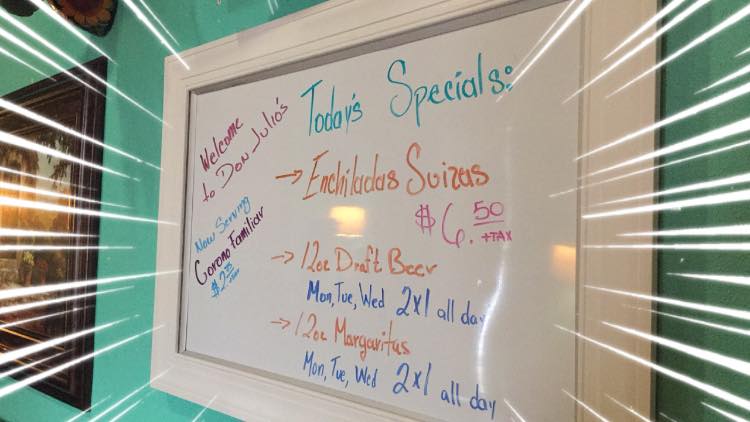 Welcome
to Don Julio's
Now Serving
Corona Familiar
Today's Specials:
→ Enchiladas Suizas
$6.50
+TAX
→ 12oz Draft Beer
Mon, Tue, Wed 2x1 all day
→ 12oz Margaritas
Mon, Tue, Wed 2x1 all day